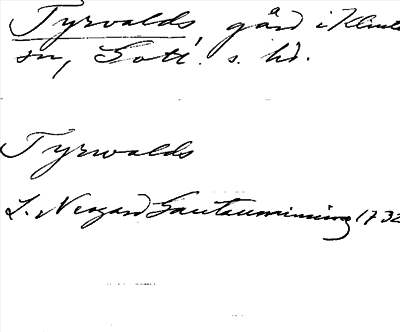 Tyrvalds, gård i Klinte
sn, Gotl. s. hd.
Tyrwalds
L. Neogard Gautauminning 1732